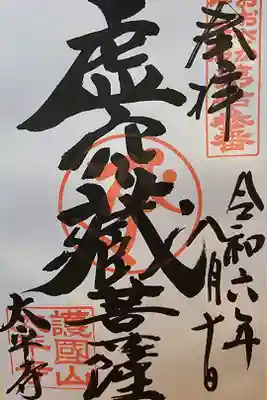 奉拝
令和六年
八月十日
虚空藏菩薩
護國山
太平寺